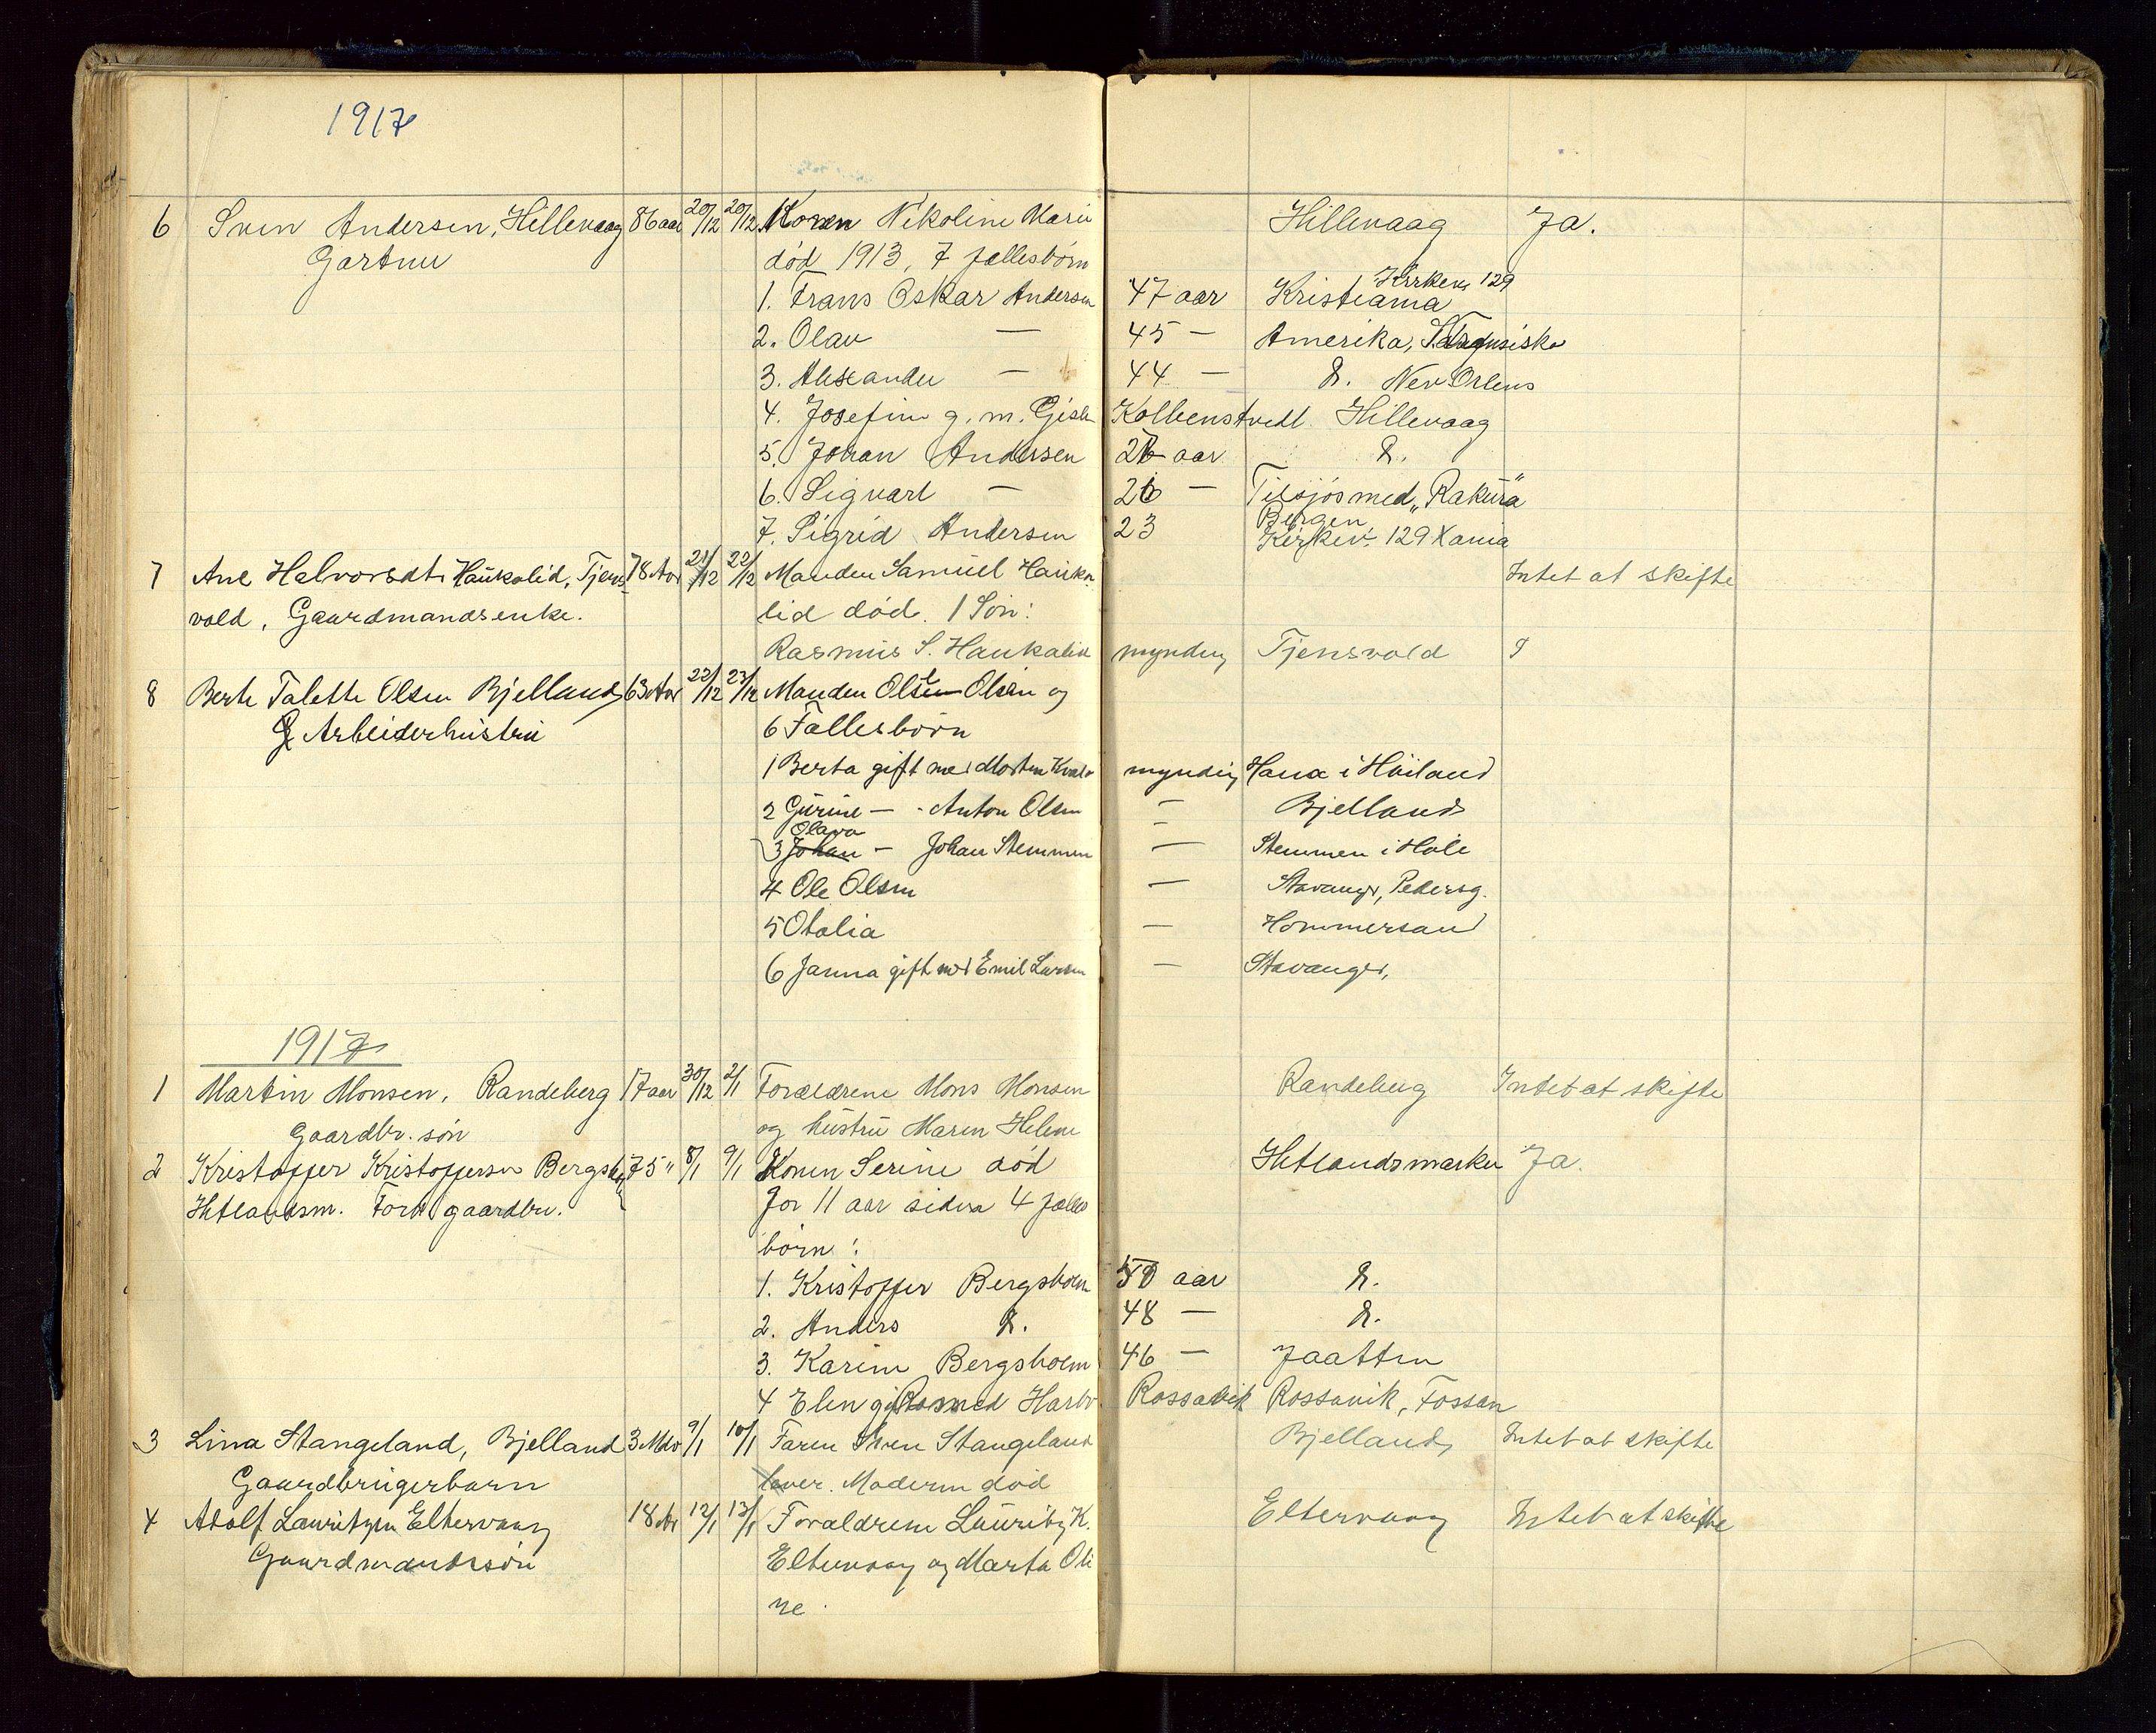 1917
6 Sven Andersen, Hillevaag 86 aar 20/12 20/12 Konen Nikoline Marie Hillevaag Ja.
Gartner død 1913, 7 fællesbørn
Kirkev. 129
1. Frans Oskar Andersen 47 aar Kristiania
2. Olav — 45 — Amerika,
3. Alexander — 44 — d. New Orlens
4. Josefine g. m. Gisle Kolbenstvedt Hillevaag
5. Johan Andersen aar d.
6. Sigvart — 26 — Tilsjøs med "Rakura"
Bergen
7. Sigrid Andersen 23 Kirkev. 129 Xania
7 Ane Halvorsdtr Haukalid, Tjens- 78 Aar 21/12 22/12 Manden Samuel Hauka- Intet at skifte
vold, Gaardmandsenke. lid død. 1 Søn:
Rasmus S. Haukalid myndig Tjensvold
8 Berte Talette Olsen Bjelland 63 Aar 22/12 23/12 Manden Olsen og
Arbeiderhustru 6 Fællesbørn
1 Berta gift med Morten myndig Hana i Høiland
2 Gurine — - Anton Olsen — Bjelland
Olava —
3 Johan — Johan Stemmen — Stemmen i Hole
4 Ole Olsen — Stavanger, Pedersg.
5 Otalia — Hommersand
6 Janna gift med Emil Larsen — Stavanger,
1917
1 Martin Monsen, Randeberg 17 aar 30/12 2/1 Forældrene Mons Monsen Randeberg Intet at skifte
Gaardbr. søn og hustru Maren Helene
2 Kristoffer Kristoffersen Bergsholm 75 " 8/1 9/1 Konen Serine død Hetlandsmarken Ja.
Hetlandsm. Forh. gaardbr. for 11 aar siden 4 fælles
børn:
1. Kristoffer Bergsholm aar d.
2. Anders d. 48 — d.
3. Karine Bergsholm 46 — Jaatten
4 Elen gift med Rossavik Rossavik, Fossan
3 Lina Stangeland, Bjelland 3 Mdr 9/1 10/1 Faren Sven Stangeland Bjelland, Intet at skifte
Gaardbrugerbarn lever. Moderen død
4 Adolf Lauritzen Eltervaag 18 Ar 12/1 13/1 Forældrene Lauritz K. Eltervaag Intet at skifte
Gaardmandssøn Eltervaag og Marta Oli
ne.